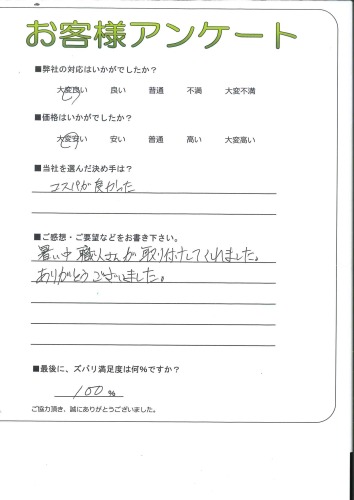 お客様アンケート
■弊社の対応はいかがでしたか？
大変良い 良い 普通 不満 大変不満
■価格はいかがでしたか？
大変安い 安い 普通 高い 大変高い
■当社を選んだ決め手は？
コスパが良かった
■ご感想・ご要望などをお書き下さい。
暑い中職人さんが取り付けしてくれました。
ありがとうございました。
■最後に、ズバリ満足度は何％ですか？
100 %
ご協力頂き、誠にありがとうございました。